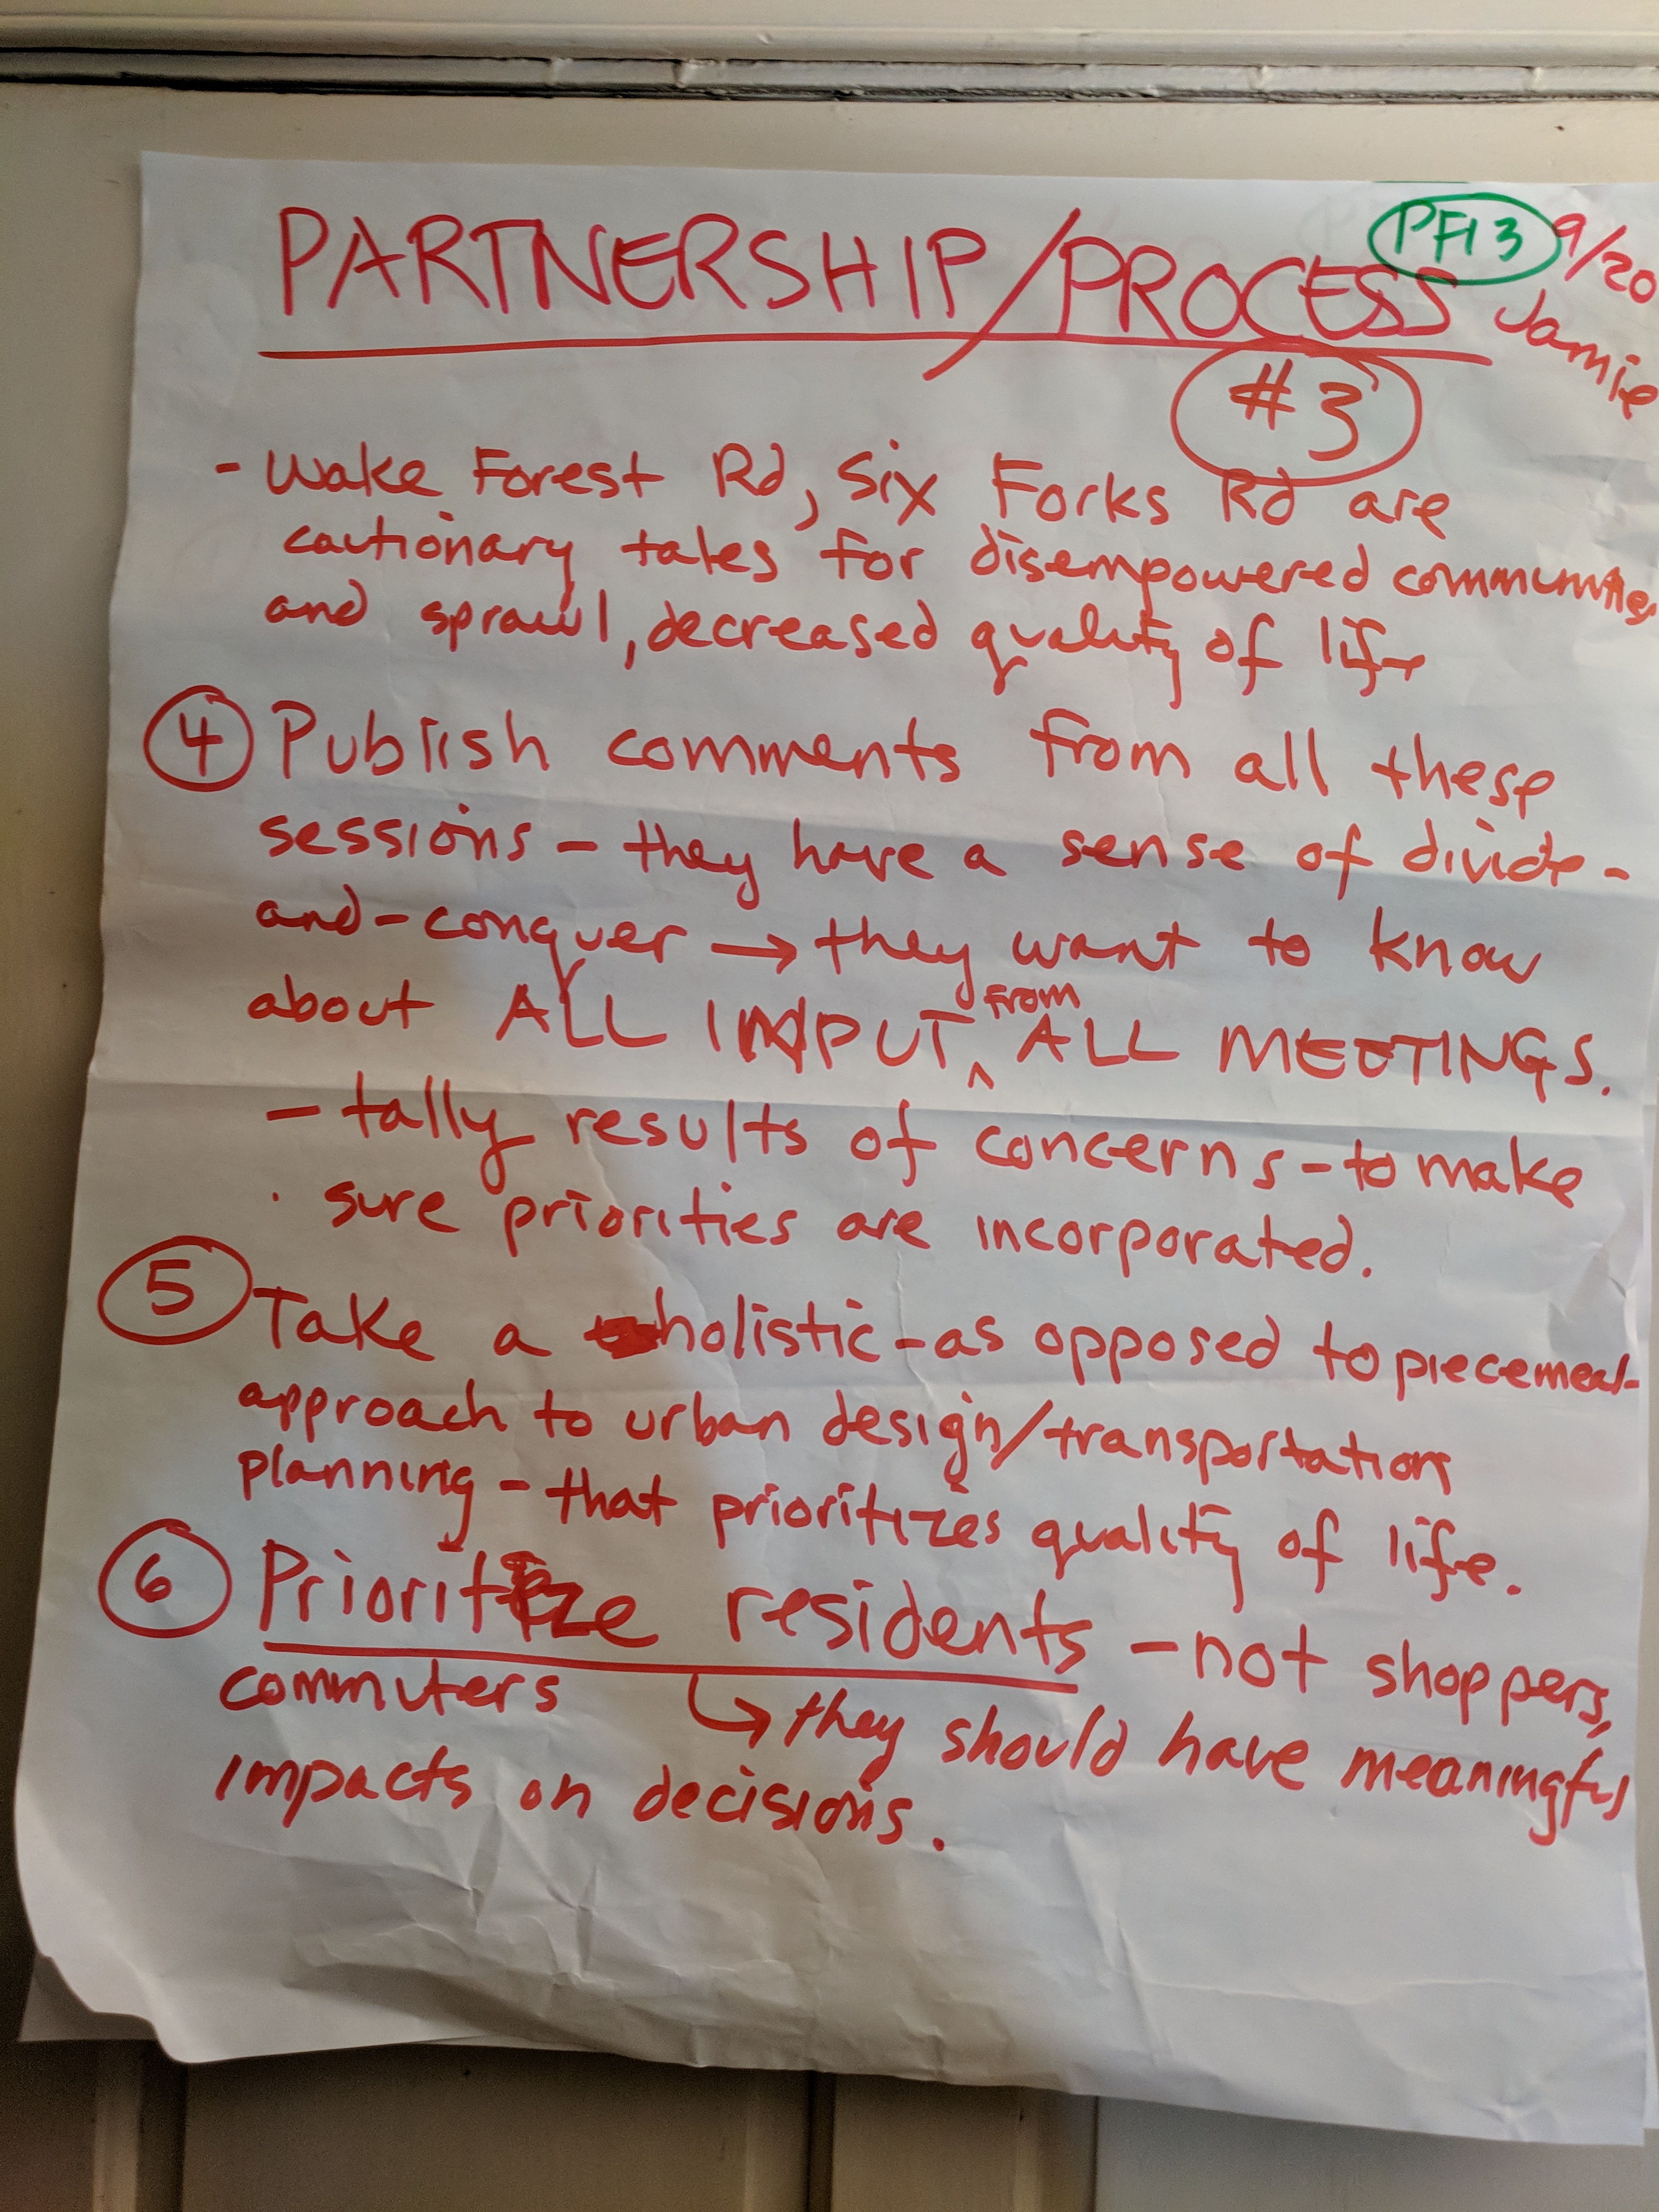 PFI 3
9/20
PARTNERSHIP/PROCESS
Jamie
#3
- Wake Forest Rd, Six Forks Rd are
cautionary tales for disempowered communities
and sprawl, decreased quality of life
4 Publish comments from all these
sessions - they have a sense of divide-
and-conquer → they want to know
about ALL INPUT ^ from ALL MEETINGS.
- tally results of concerns - to make
sure priorities are incorporated.
5 Take a holistic - as opposed to piecemeal -
approach to urban design/transportation
planning - that prioritizes quality of life.
6 Prioritize residents - not shoppers,
commuters ↳ they should have meaningful
impacts on decisions.